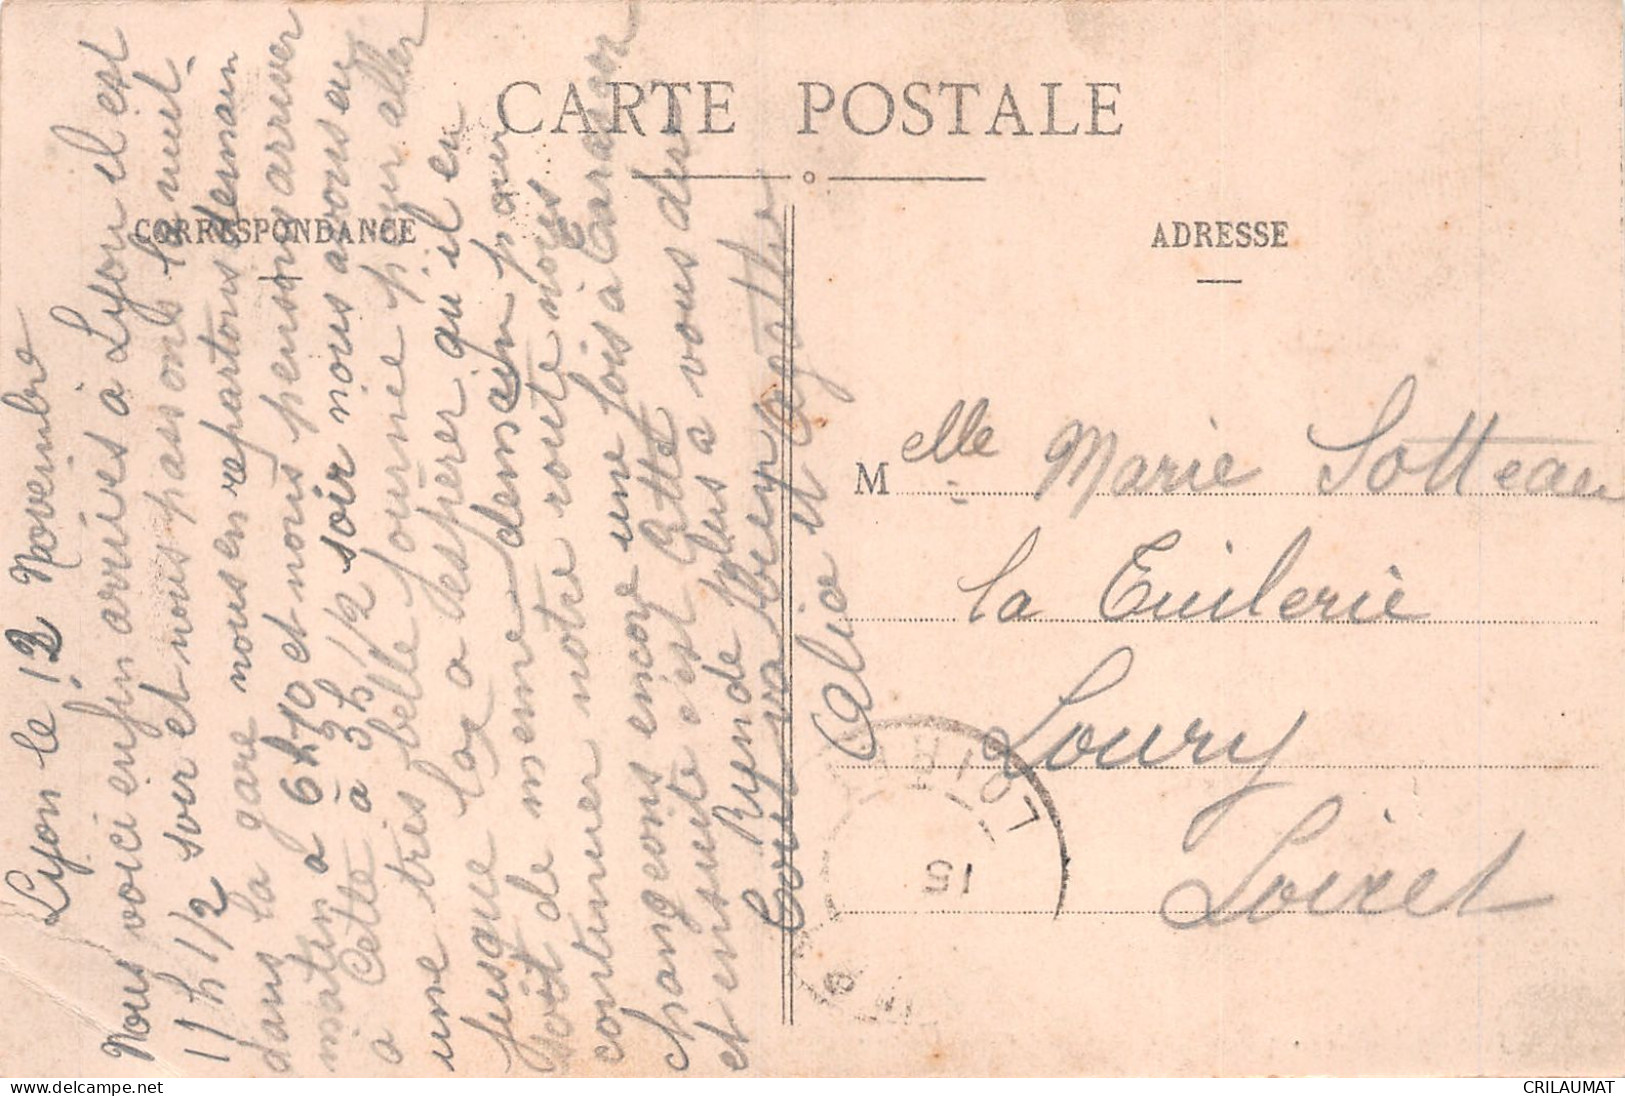 CARTE POSTALE
CORRESPONDANCE
ADRESSE
Lyon le 12 Novembre
Nous voici enfin arrivés à Lyon il est
11 h 1/2 soir et nous passons la nuit
dans la gare nous en repartons demain
matin a 6h10 et nous pensons arriver
a Cette à 3h 1/2 soir nous avons eu
une très belle journée pour aller
jusque la a espérer qu'il en
soit de meme demain pour
continuer notre route nous
changeons encore une fois a Tarascon
et ensuite c'est Cette vous
Rien de plus a
Tout va bien
Alia et Agathe
Melle Marie Sotteau
la Tuilerie
Loury
Loiret
LOIRET
15
CRILAUMAT
www.delcampe.net